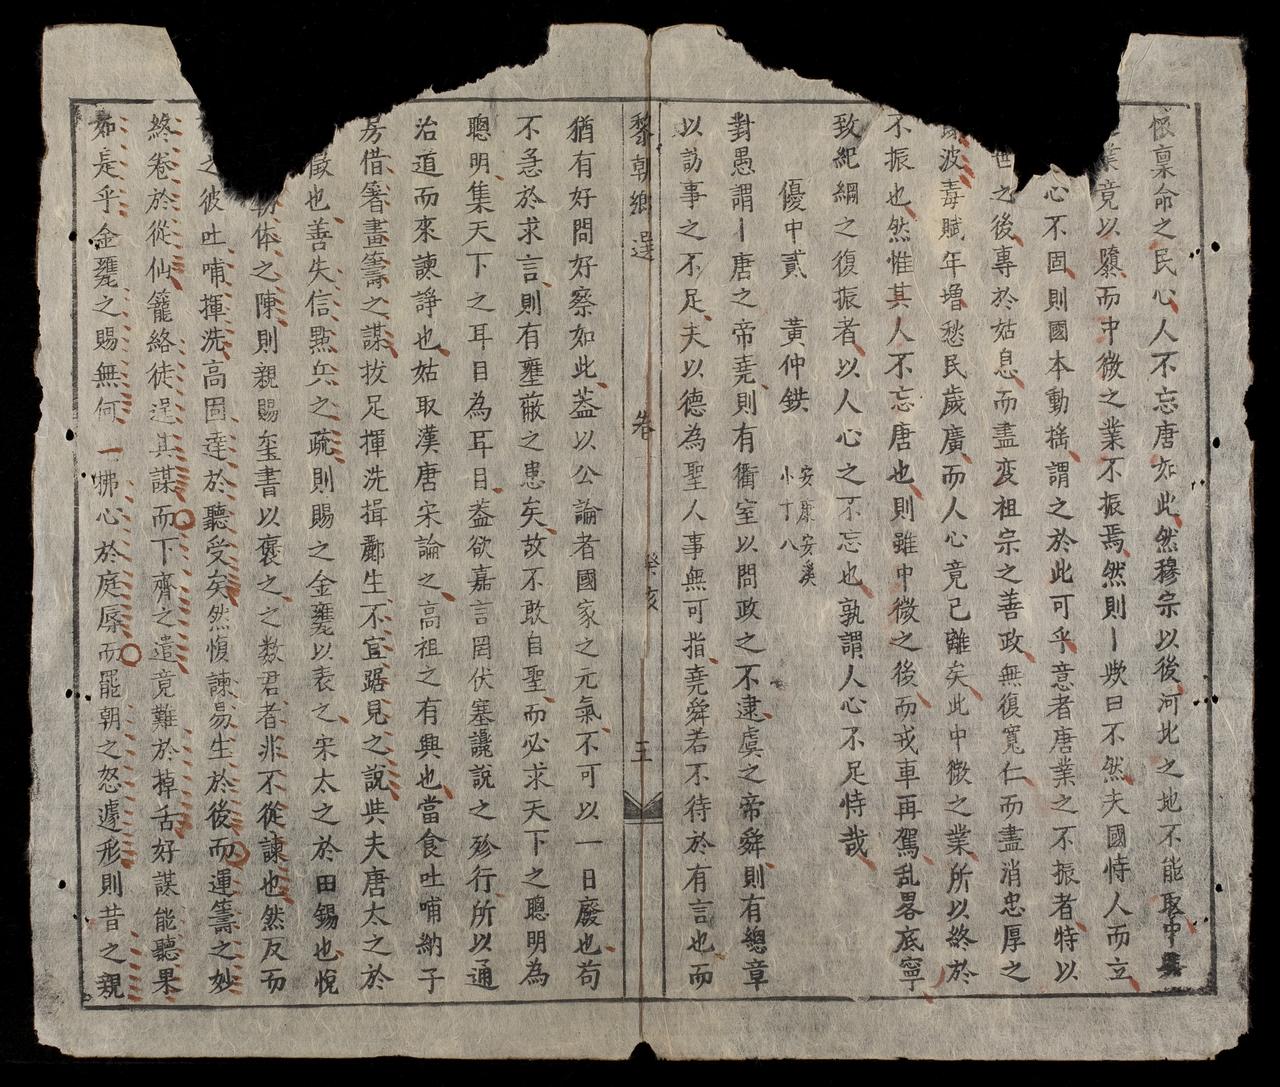 懷稟命之民心人不忘唐如此然穆宗以後河北之地不能取中興
業竟以隳而中微之業不振焉然則丨歟曰不然夫國恃人而立
心不固則國本動搖謂之於此可乎意者唐業之不振者特以
世之後專於姑息而盡変祖宗之善政無復寬仁而盡消忠厚之
波毒賦年增愁民歲廣而人心竟已離矣此中微之業所以終於
不振也然惟其人不忘唐也則雖中微之後而戎車再駕乱畧底寧
致紀綱之復振者以人心之不忘也孰謂人心不足恃哉
優中貳 黃仲鉷 安康安溪 小丁八
對愚謂丨唐之帝堯則有衢室以問政之不逮虞之帝舜則有總章
以訪事之不足夫以德為聖人事無可指堯舜若不待於有言也而
黎朝鄉選 卷 癸亥 三
猶有好問好察如此蓋以公論者國家之元氣不可以一日廢也苟
不急於求言則有壅蔽之患矣故不敢自聖而必求天下之聰明為
聰明集天下之耳目為耳目蓋欲嘉言罔伏塞讒說之殄行所以通
治道而來諫諍也姑取漢唐宋論之高祖之有興也當食吐哺納子
房借箸畫籌之謀拔足揮洗揖酈生不宜踞見之說與夫唐太之於
徵也善失信點兵之疏則賜之金甕以表之宋太之於田錫也悅
体之陳則親賜玺書以褒之之数君者非不從諫也然反而
之彼吐哺揮洗高固達於聽受矣然愎諫易生於後而運籌之妙
終卷於從仙籠絡徒逞其謀而下齊之遣竟難於掉舌好謀能聽果
如是乎金甕之賜無何一拂心於庭辱而罷朝之怒遽形則昔之親